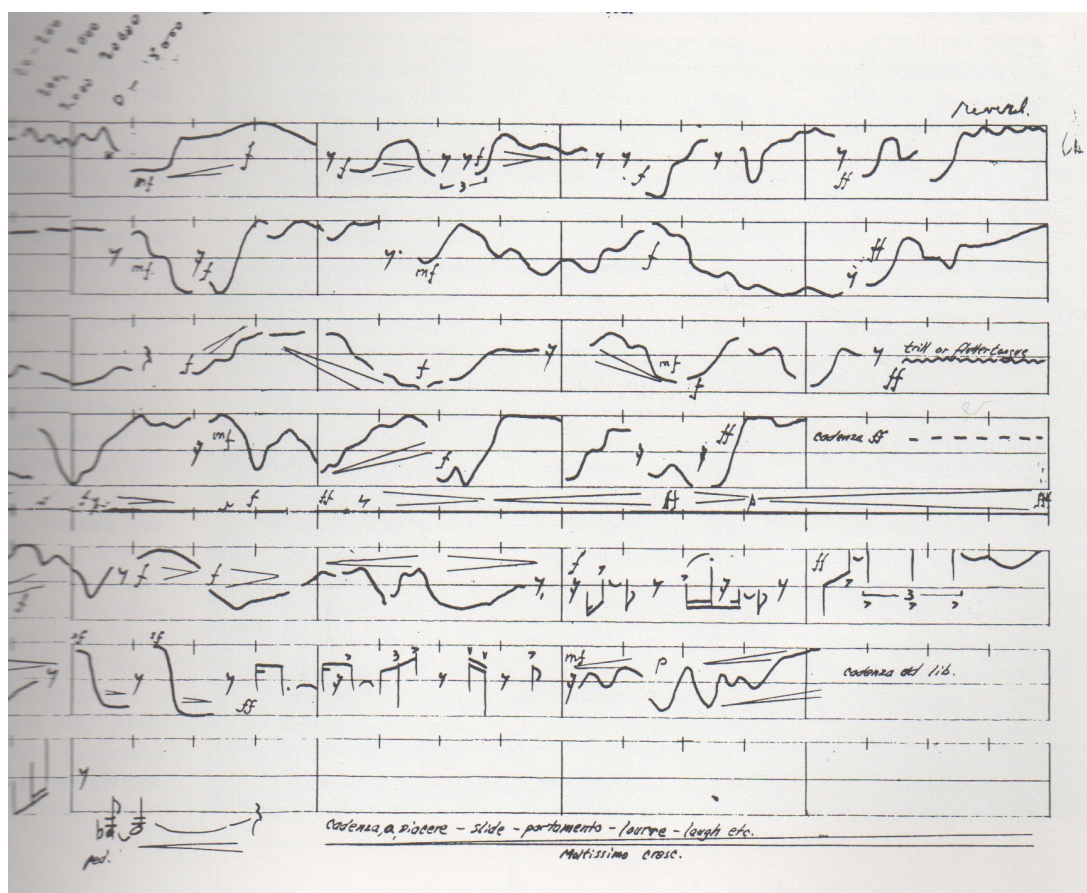 20-200
200, 2000
2000 20000
0 L 5000
reverb.
mf f f 3 f ff
mf. f mf f ff
f f mf f ff trill or fluttertongue
mf f ff cadenza ff
f ff ff p fff
f f f ff 3
sf sf ff 3 mf p cadenza ad lib.
cadenza, a, piacere - slide - portamento - lourre - laugh etc.
ped. Moltissimo cresc.